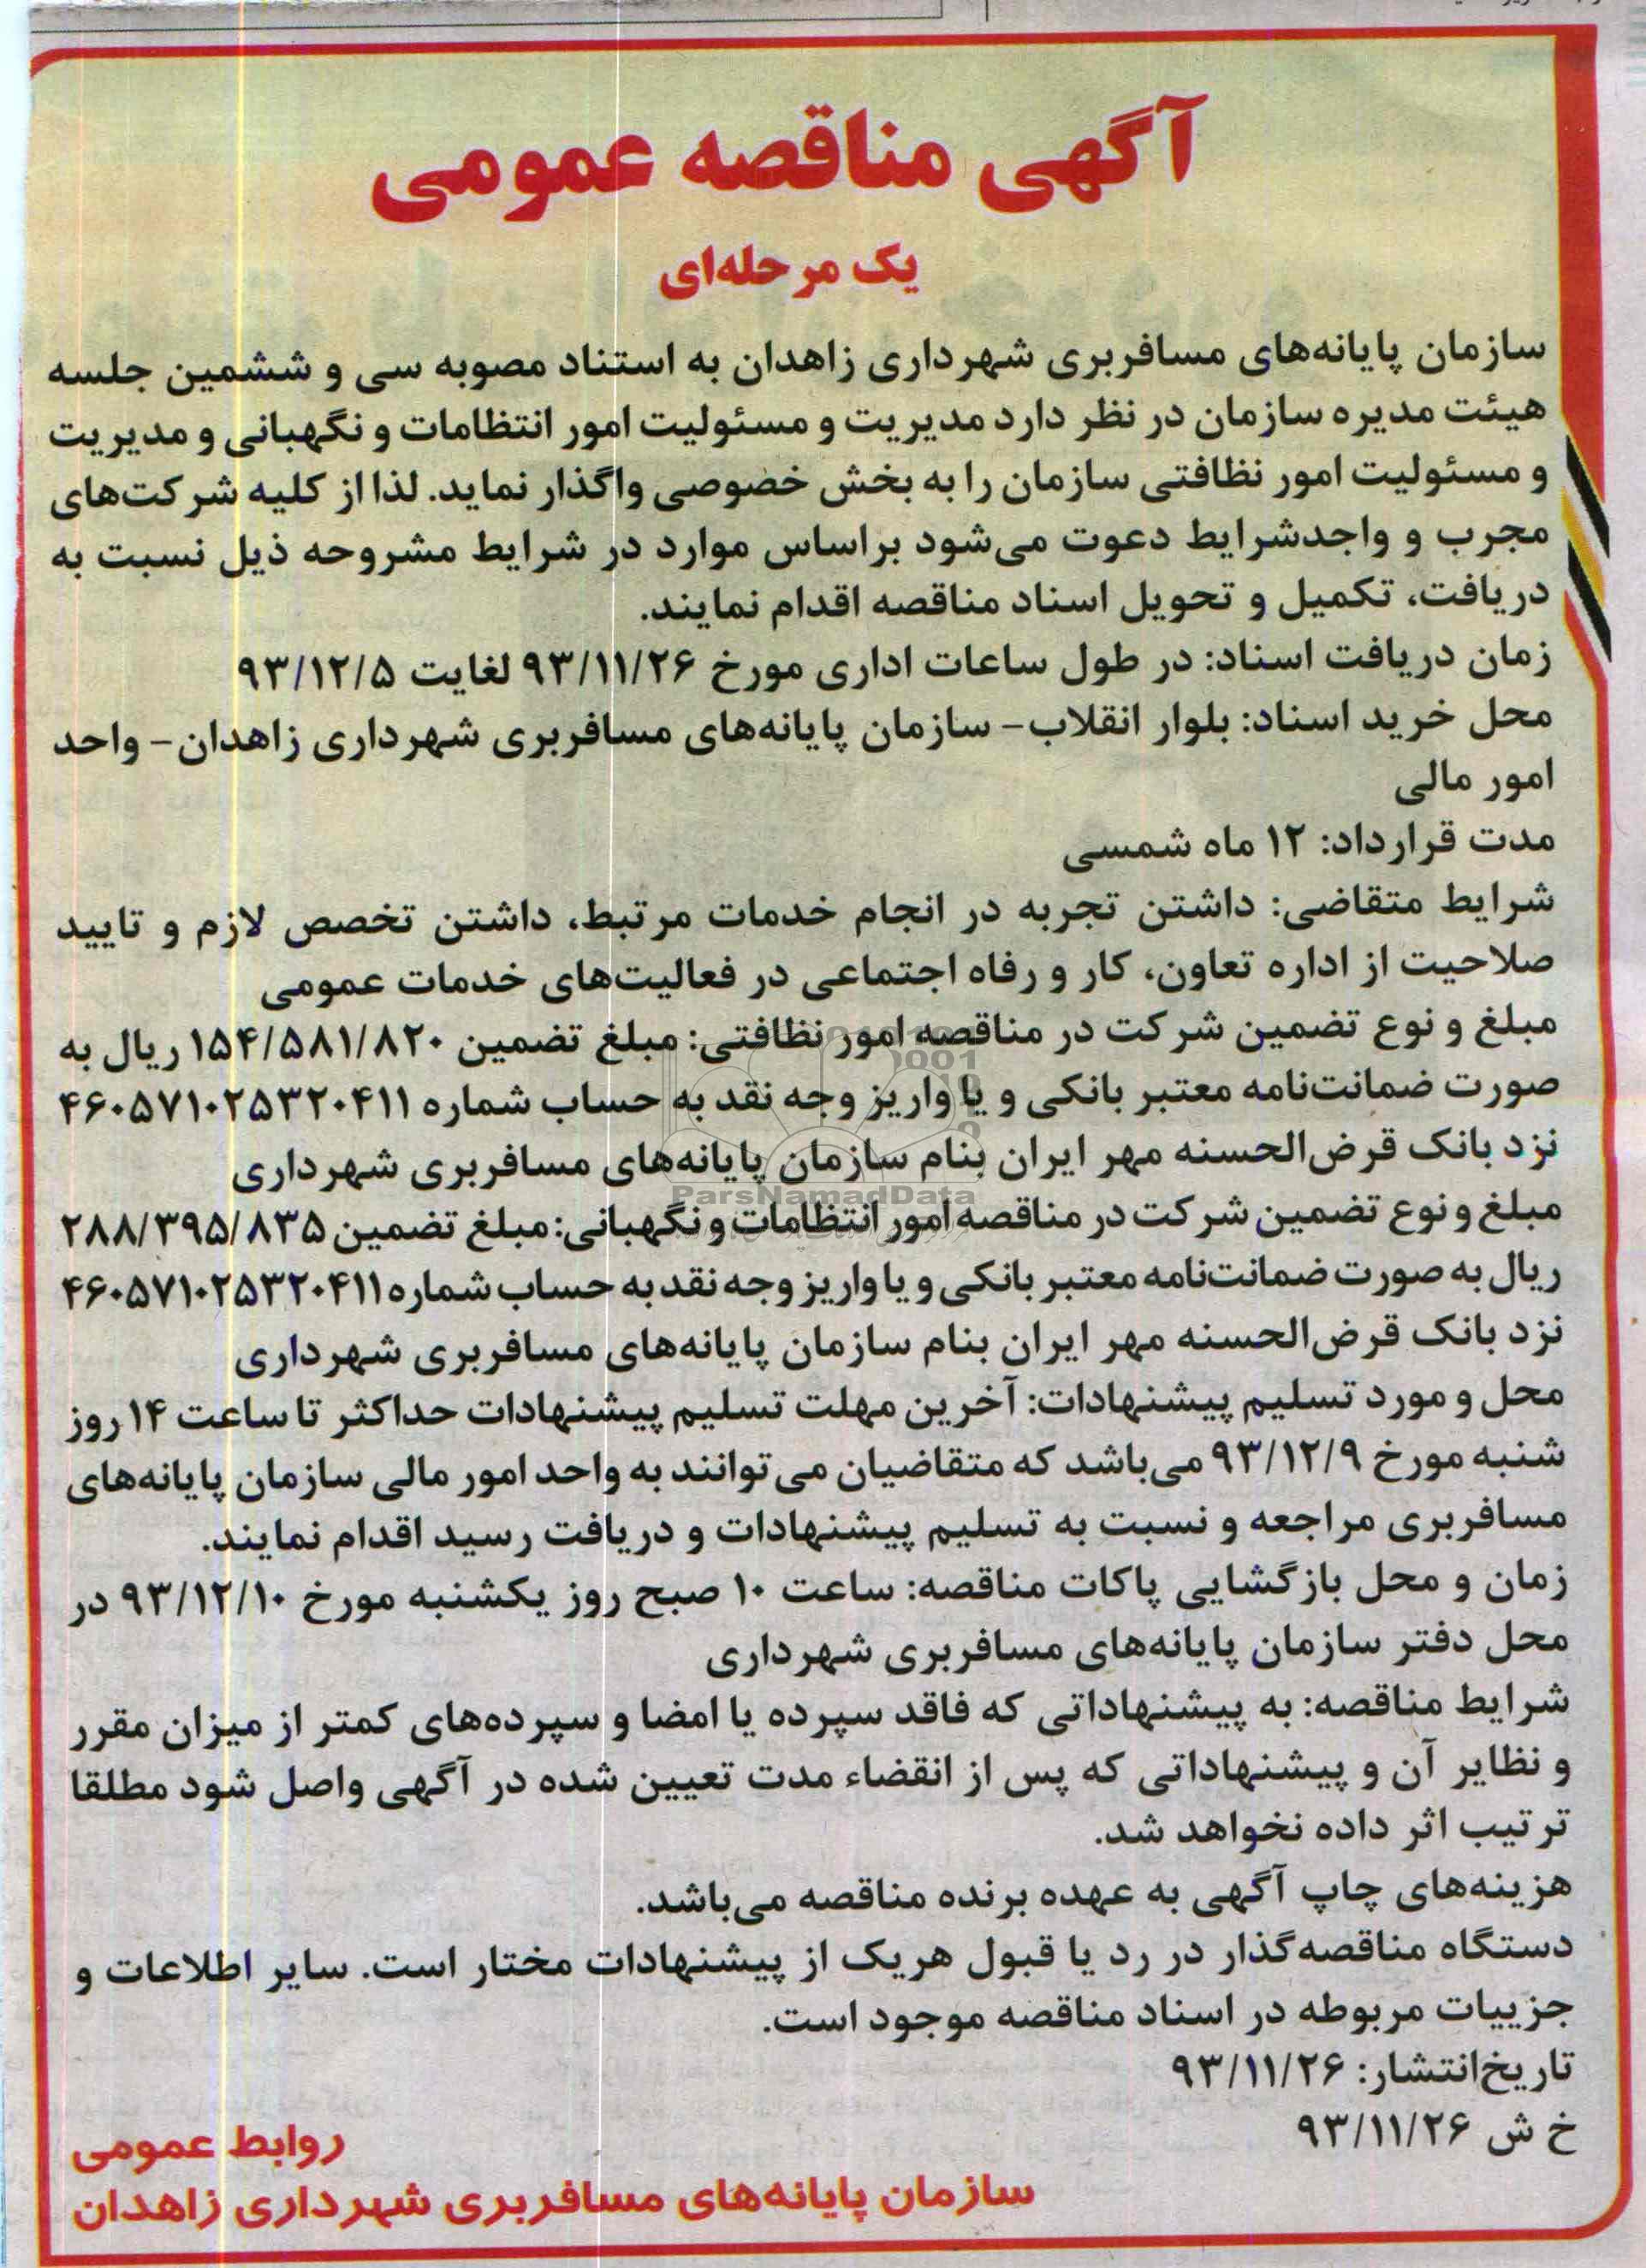 آگهی مناقصه عمومی
یک مرحله‌ای
سازمان پایانه‌های مسافربری شهرداری زاهدان به استناد مصوبه سی و ششمین جلسه
هیئت مدیره سازمان در نظر دارد مدیریت و مسئولیت امور انتظامات و نگهبانی و مدیریت
و مسئولیت امور نظافتی سازمان را به بخش خصوصی واگذار نماید. لذا از کلیه شرکت‌های
مجرب و واجدشرایط دعوت می‌شود براساس موارد در شرایط مشروحه ذیل نسبت به
دریافت، تکمیل و تحویل اسناد مناقصه اقدام نمایند.
زمان دریافت اسناد: در طول ساعات اداری مورخ ۹۳/۱۱/۲۶ لغایت ۹۳/۱۲/۵
محل خرید اسناد: بلوار انقلاب- سازمان پایانه‌های مسافربری شهرداری زاهدان- واحد
امور مالی
مدت قرارداد: ۱۲ ماه شمسی
شرایط متقاضی: داشتن تجربه در انجام خدمات مرتبط، داشتن تخصص لازم و تایید
صلاحیت از اداره تعاون، کار و رفاه اجتماعی در فعالیت‌های خدمات عمومی
مبلغ و نوع تضمین شرکت در مناقصه امور نظافتی: مبلغ تضمین ۱۵۴/۵۸۱/۸۲۰ ریال به
صورت ضمانت‌نامه معتبر بانکی و یا واریز وجه نقد به حساب شماره ۴۶۰۵۷۱۰۲۵۳۲۰۴۱۱
نزد بانک قرض‌الحسنه مهر ایران بنام سازمان پایانه‌های مسافربری شهرداری
ParsNamadData
مبلغ و نوع تضمین شرکت در مناقصه امور انتظامات و نگهبانی: مبلغ تضمین ۲۸۸/۳۹۵/۸۳۵
ریال به صورت ضمانت‌نامه معتبر بانکی و یا واریز وجه نقد به حساب شماره ۴۶۰۵۷۱۰۲۵۳۲۰۴۱۱
نزد بانک قرض‌الحسنه مهر ایران بنام سازمان پایانه‌های مسافربری شهرداری
محل و مورد تسلیم پیشنهادات: آخرین مهلت تسلیم پیشنهادات حداکثر تا ساعت ۱۴ روز
شنبه مورخ ۹۳/۱۲/۹ می‌باشد که متقاضیان می‌توانند به واحد امور مالی سازمان پایانه‌های
مسافربری مراجعه و نسبت به تسلیم پیشنهادات و دریافت رسید اقدام نمایند.
زمان و محل بازگشایی پاکات مناقصه: ساعت ۱۰ صبح روز یکشنبه مورخ ۹۳/۱۲/۱۰ در
محل دفتر سازمان پایانه‌های مسافربری شهرداری
شرایط مناقصه: به پیشنهاداتی که فاقد سپرده یا امضا و سپرده‌های کمتر از میزان مقرر
و نظایر آن و پیشنهاداتی که پس از انقضاء مدت تعیین شده در آگهی واصل شود مطلقا
ترتیب اثر داده نخواهد شد.
هزینه‌های چاپ آگهی به عهده برنده مناقصه می‌باشد.
دستگاه مناقصه‌گذار در رد یا قبول هریک از پیشنهادات مختار است. سایر اطلاعات و
جزییات مربوطه در اسناد مناقصه موجود است.
تاریخ‌انتشار: ۹۳/۱۱/۲۶
خ ش ۹۳/۱۱/۲۶
روابط عمومی
سازمان پایانه‌های مسافربری شهرداری زاهدان